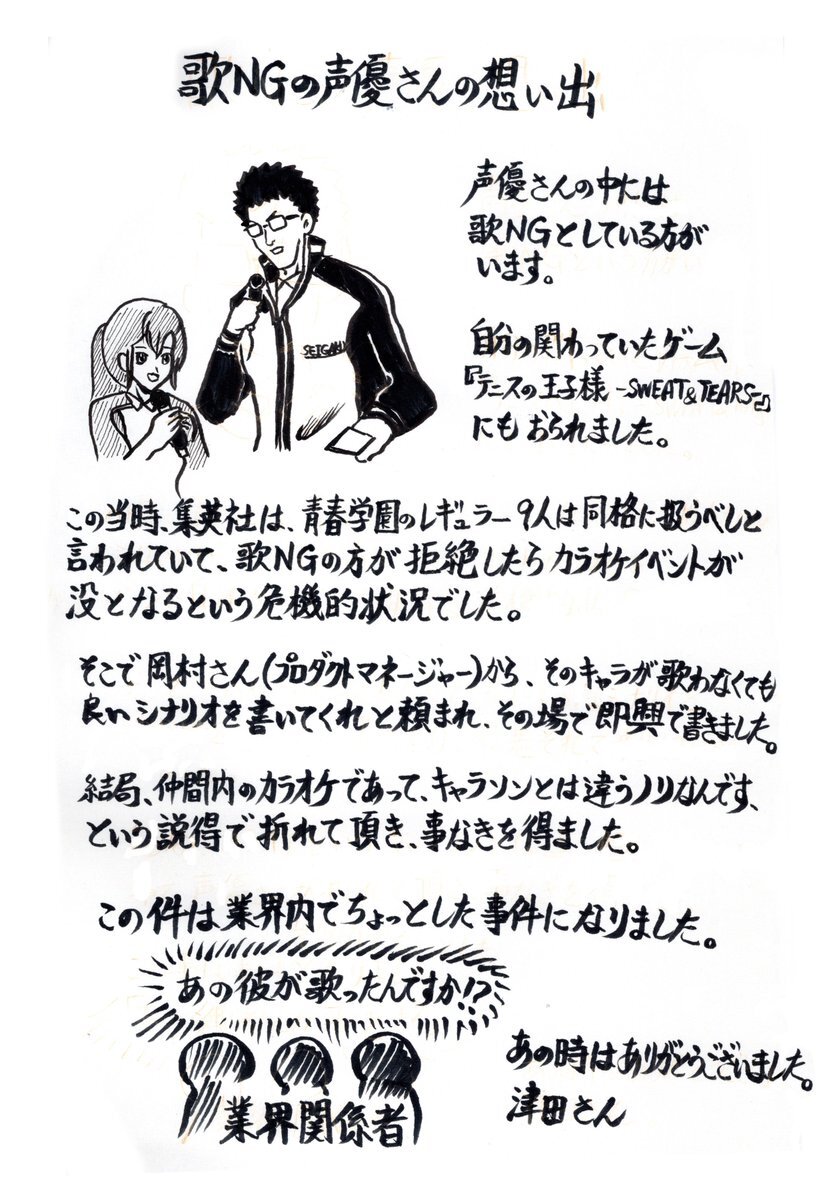 歌NGの声優さんの想い出
声優さんの中には
歌NGとしている方が
います。
自分の関わっていたゲーム
『テニスの王子様-SWEAT&TEARS-』
にもおられました。
SEIGAKU
この当時、集英社は、青春学園のレギュラー9人は同格に扱うべしと
言われていて、歌NGの方が拒絶したらカラオケイベントが
没となるという危機的状況でした。
そこで岡村さん(プロダクトマネージャー)から、そのキャラが歌わなくても
良いシナリオを書いてくれと頼まれ、その場で即興で書きました。
結局、仲間内のカラオケであって、キャラソンとは違うノリなんです、
という説得で折れて頂き、事なきを得ました。
この件は業界内でちょっとした事件になりました。
あの彼が歌ったんですか!?
業界関係者
あの時はありがとうございました。
津田さん